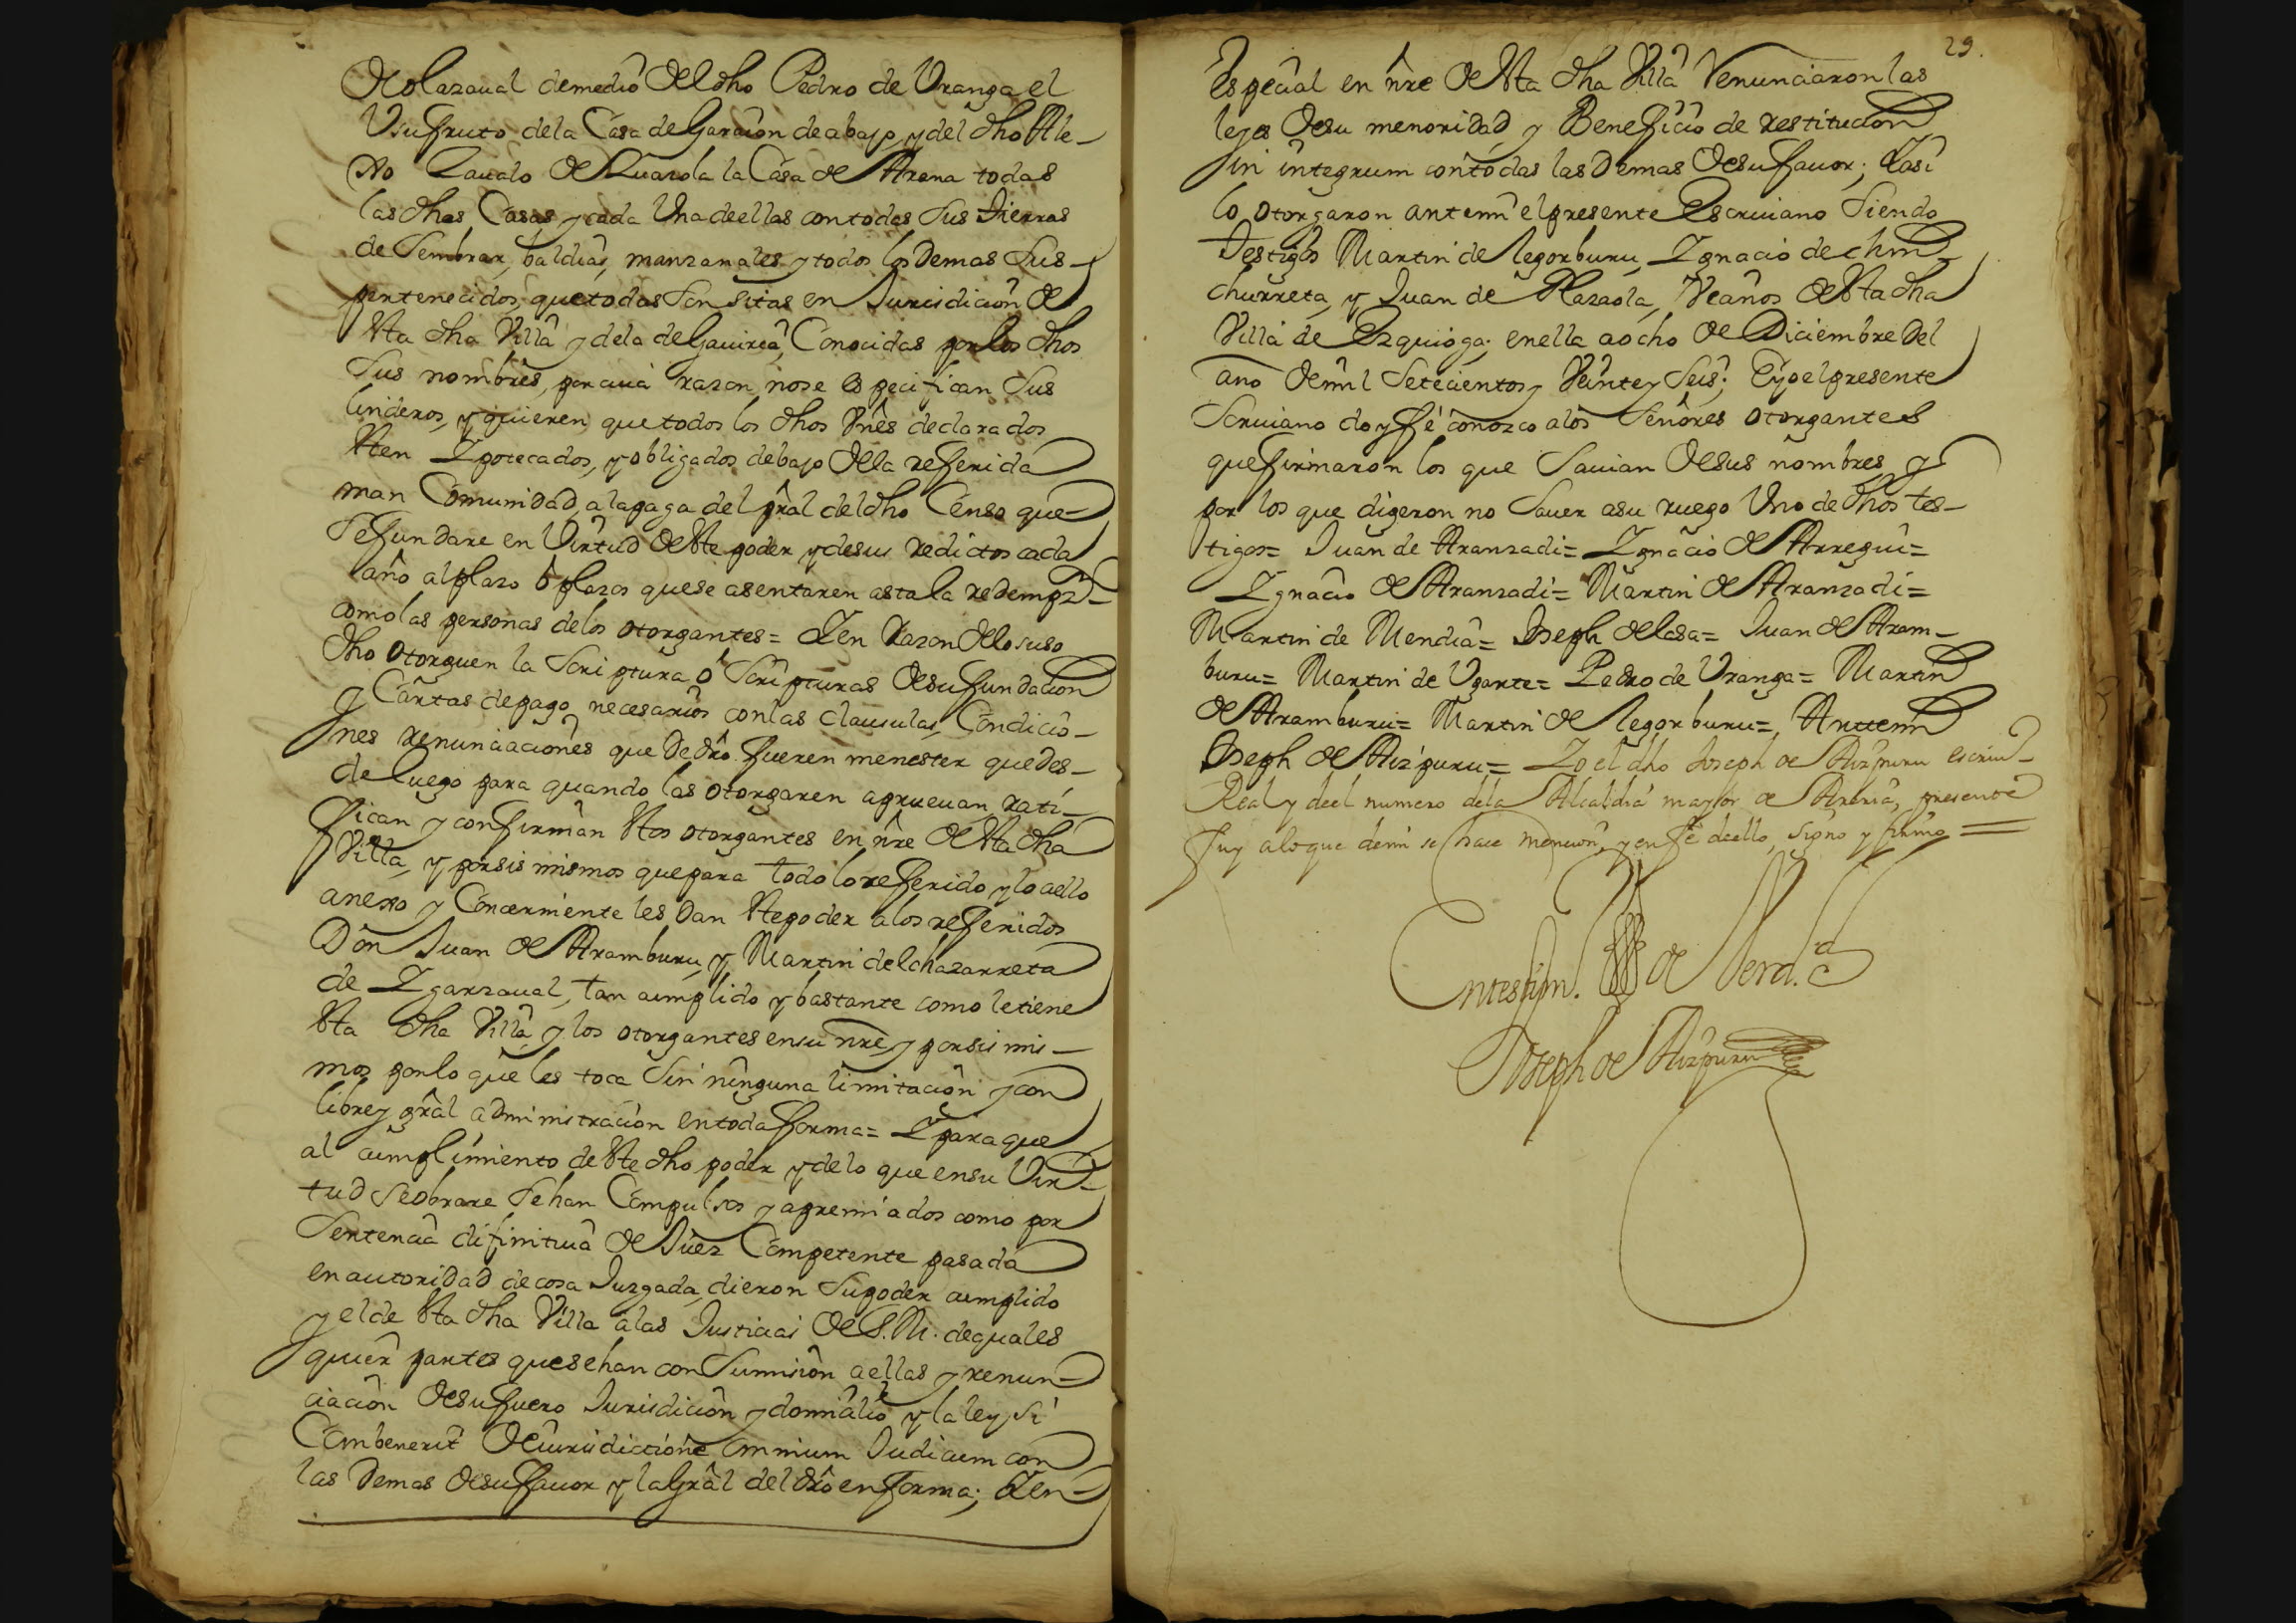 de Olazaual de medio del dho Pedro de Vranga el
Vsufruto dela Casa de Garacion de abajo, y del dho Ale-
xo Zaualo de Zuazola la Casa de Arana todas
las dhas Casas y cada Vna deellas con todas Sus Tierras
de Sembrar, baldias, manzanales y todos los Demas Sus
pertenecidos, que todas Son sitas en Jurisdicion de
esta dha Villa y dela de Gauiria, Conocidas por los dhos
Sus nombres, por cuia razon nose especifican Sus
linderos, y quieren que todos los dhos Vnês declarados
esten Ypotecados, y obligados debajo dela referida
man Comunidad, ala paga del prâl del dho Censo que
Se fundare en Virtud de este poder y desus redictos cada
año al plazo ô plazos quese asentaren asta la redempz-
como las personas delos otorgantes= Y en Razon delo suso
dho Otorguen la Scriptura, ó Scripturas desu fundacion
y Cartas depago necesarios con las clausulas, Condicio-
nes renunciaciones que de drô fueren menester quedes-
de luego para quando las otorgaren aprueuan, rati-
fican y confirman estos otorgantes en nrê de esta dha
Villa, y porsis mismos que para todo lo referido y lo aello
anexo y Concerniente les Dan este poder alos referidos
Don Juan de Aramburu, y Martin de lchazarreta
de Ygarzaual, tan cumplido y bastante como le tiene
esta dha Villa, y los otorgantes ensu nrê y porsis mis-
mos porlo que les toca Sin ninguna limitacion y con
libre y grâl administracion entoda forma= Y paraque
al cumplimiento de este dho poder y delo que ensu Vir-
tud Seobrare Sehan Compulsos y apremiados como por
Sentencia difinitiua de Juez Competente pasada
en autoridad de cosa Juzgada, dieron Supoder cumplido
y el de esta dha Villa alas Justicias de S. M. dequales
quier partes quesehan con Sumision aellas y renun-
ciacion desufuero Jurisdicion y domicilio y la ley Si
Combenerit de iurisdictione omnium Judicum con
las Demas desufauor y la Grâl del drô en forma; Y en
29.
especial en nrê de esta dha Villa Renunciaron las
leyes desu menoridad y Beneficio de restitucion
in integrum contodas las Demas desufauor; Y asi
lo otorgaron antemi el presente Escriuano Siendo
Testigos Martin de legorburu, Ygnacio de chin-
churreta, y Juan de Plazaola, Veçinos de esta dha
Villa de Ezquioga; enella aocho de Diciembre del
año de mil Setecientos y Veinte y Seis; E yo el presente
Scriuano doy fé conozco alos Señores otorgantes
que firmaron los que Sauian desus nombres, y
por los que digeron no Sauer asu ruego Vno de dhos tes-
tigos= Juan de Aranzadi= Ygnacio de Arregui=
Ygnacio de Aranzadi= Martin de Aranzadi=
Martin de Mendia= Joseph de lasa= Juan de Aram-
buru= Martin de Vgarte= Pedro de Vranga= Martin
de Aramburu= Martin de legorburu= Antemi
Joseph de Aizpuru= Yo el dho Joseph de Aizpuru escriu-
Real y deel numero dela Alcaldia mayor de Areria, presente
fuy alo que demi se hace mencion, y en fe deello, signo y firmo=
En testim. de Verd.
Joseph de Aizpuru